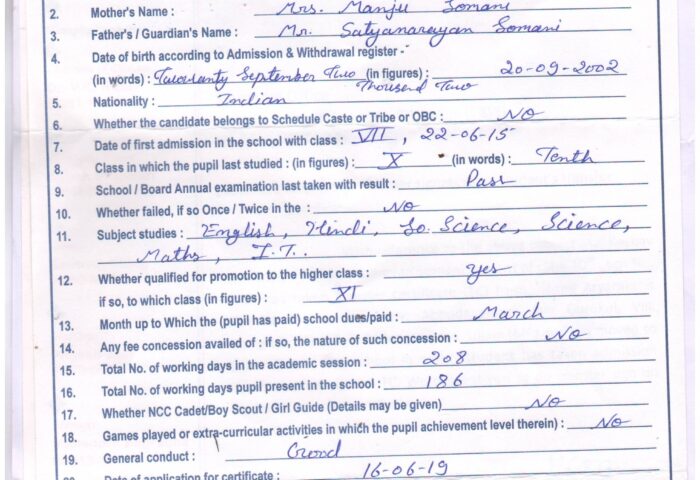 2. Mother's Name : Mrs. Manju Somani
3. Father's / Guardian's Name : Mr. Satyanarayan Somani
4. Date of birth according to Admission & Withdrawal register -
(in words) : September Two (in figures) : 20-09-2002
Thousend Two
5. Nationality : Indian
6. Whether the candidate belongs to Schedule Caste or Tribe or OBC : NO
7. Date of first admission in the school with class : VII , 22-06-15
8. Class in which the pupil last studied : (in figures) : X (in words) : Tenth
9. School / Board Annual examination last taken with result : Pass
10. Whether failed, if so Once / Twice in the : NO
11. Subject studies : English, Hindi, So. Science, Science,
Maths, I.T..
12. Whether qualified for promotion to the higher class : yes
if so, to which class (in figures) : XI
13. Month up to Which the (pupil has paid) school dues/paid : March
14. Any fee concession availed of : if so, the nature of such concession : No
15. Total No. of working days in the academic session : 208
16. Total No. of working days pupil present in the school : 186
17. Whether NCC Cadet/Boy Scout / Girl Guide (Details may be given) No
18. Games played or extra-curricular activities in which the pupil achievement level therein) : No
19. General conduct : Good
Date of application for certificate : 16-06-19